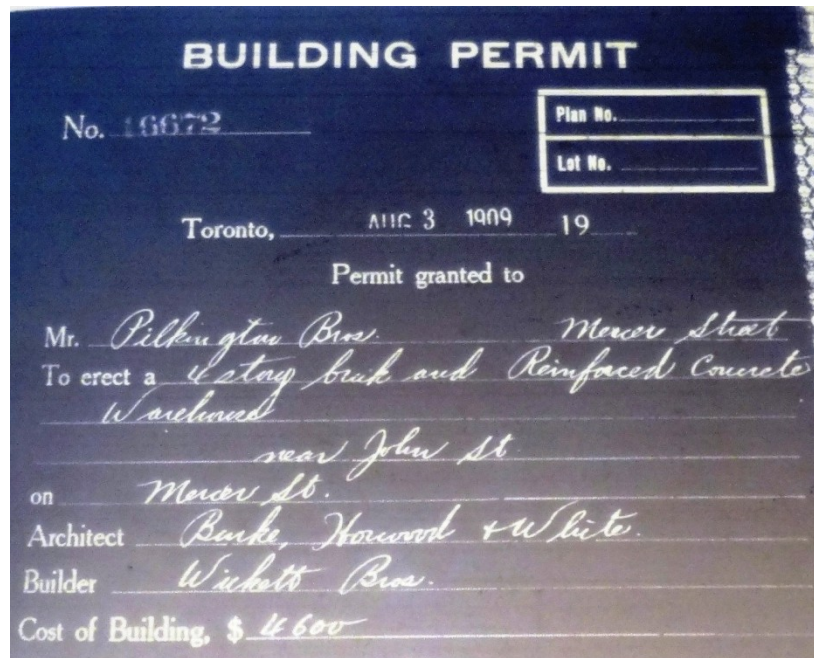 BUILDING PERMIT
No. 16672
Plan No.
Lot No.
Toronto, AUG 3 1909 19
Permit granted to
Mr. Pilkington Bros. Mercer Street
To erect a 4 story brick and Reinforced Concrete
Warehouse
near John St
on Mercer St.
Architect Burke, Horwood & White.
Builder Wickett Bros.
Cost of Building, $ 4600